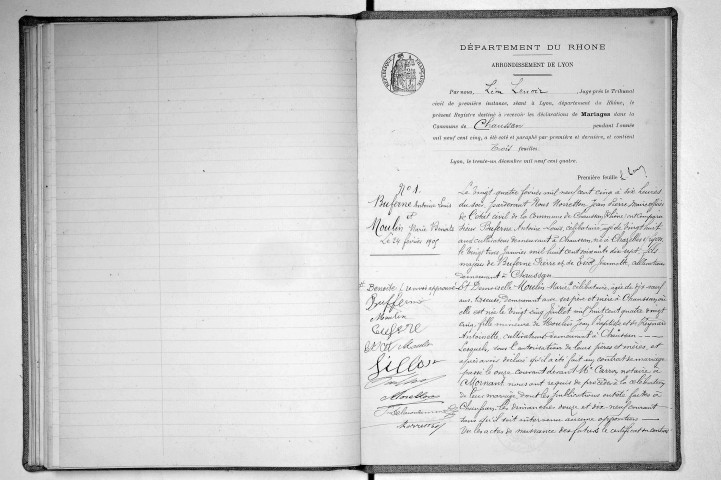 DÉPARTEMENT DU RHONE
ARRONDISSEMENT DE LYON
Par nous, Léon Lenoir, Juge près le Tribunal
civil de première instance, séant à Lyon, département du Rhône, le
présent Registre destiné à recevoir les déclarations de Mariages dans la
Commune de Chaussan pendant l'année
mil neuf cent cinq, a été coté et paraphé par première et dernière, et contient
trois feuilles.
Lyon, le trente-un décembre mil neuf cent quatre.
Première feuille
N° 1.
Buferne Antoine Louis
et
Moulin Marie Benoîte
Le 24 février 1905
Le vingt quatre février mil neuf cent cinq à six heures
du soir, pardevant Nous Jean Pierre, maire officier
de l'état civil de la Commune de Chaussan, Rhône, ont comparu
Buferne Antoine Louis, célibataire, âgé de vingt huit
ans, cultivateur demeurant à Chaussan, né à
le vingt trois janvier mil huit cent soixante dix sept, fils
majeur de Buferne Pierre et de Jeannette, cultivateurs
demeurant à Chaussan
Et Demoiselle Moulin Marie célibataire, âgée de dix neuf
ans, demeurant avec ses père et mère à Chaussan où
elle est née le vingt cinq juillet mil huit cent quatre vingt
cinq, fille mineure de Moulin Jean Baptiste et de
Antoinette, cultivateurs demeurant à Chaussan
Lesquels, sous l'autorisation de leurs pères et mères, et
après avoir déclaré qu'il a été fait un contrat de mariage
passé le onze courant devant Me Carra, notaire à
Mornant, nous ont requis de procéder à la célébration
de leur mariage dont les publications ont été faites à
Chaussan les dimanches douze et dix neuf courant
sans qu'il soit intervenu aucune opposition
Vu les actes de naissance des futurs, le certificat du contrat
Benoîte (renvoi approuvé)
Bufferne
Moulin